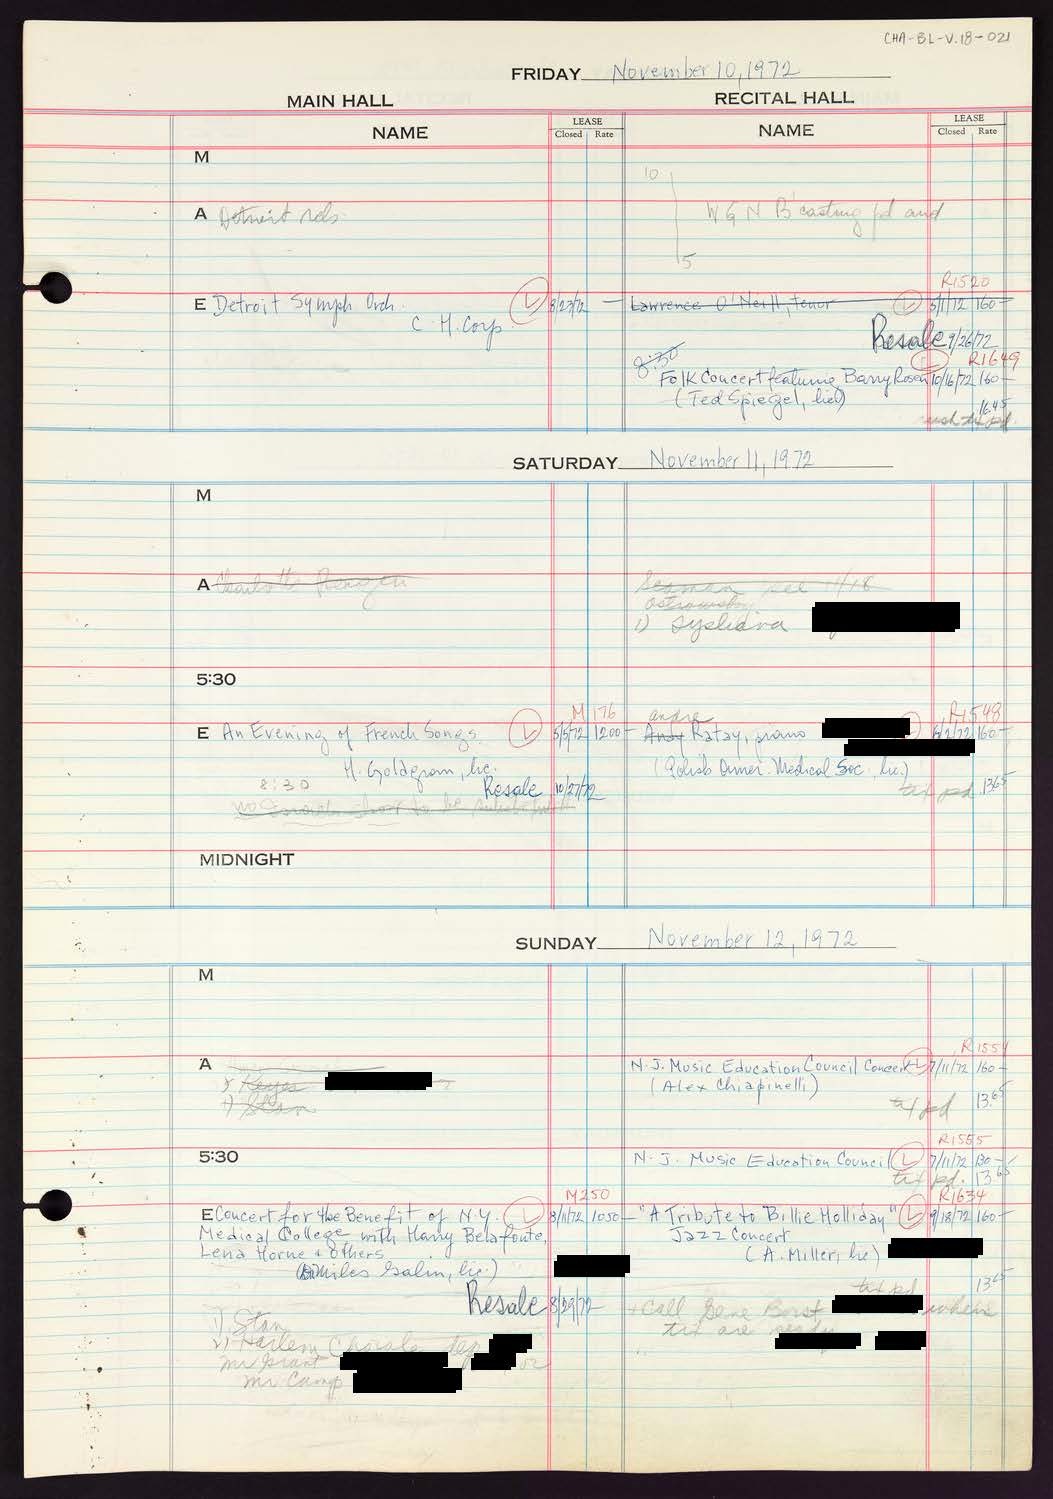 CHA-BL-V.18-021
FRIDAY November 10, 1972
MAIN HALL RECITAL HALL
NAME LEASE Closed Rate NAME LEASE Closed Rate
M
10
A Detroit rds. W G N B'casting pd and
5
R1520
E Detroit Symph Orch. L 8/23/72 — Lawrence O'Neill, tenor L 5/1/72 160—
C. H. Corp.
Resale 9/26/72
8:30 L R1649
Folk Concert featuring Barry Rosen 10/16/72 160—
(Ted Spiegel, lic)
16.45
tix pd.
SATURDAY November 11, 1972
M
A Charlotte Bergen Seaman see 11/18
Ostrowsky
1)
5:30
M176 andre R1548
E An Evening of French Songs. L 5/5/72 1200— Andy Ratay, piano L 6/2/72 160—
H. Goldgran, lic. (Polish Amer. Medical Soc. lic.)
8:30 Resale 10/27/72 tix pd. 13.65
to be
MIDNIGHT
SUNDAY November 12, 1972
M
R1554
A N.J. Music Education Council Concert L 7/11/72 160—
Keyes (Alex Chiapinelli)
1) Stan tix pd 13.65
R1555
5:30 N.J. Music Education Council L 7/11/72 130—
tix pd. 13.65
M250 R1634
E Concert for the Benefit of N.Y. L 8/11/72 1050— "A Tribute to Billie Holliday" L 9/18/72 160—
Medical College with Harry Belafonte, Jazz Concert
Lena Horne & others (A. Miller, lic)
(Miles Galin, lic.)
tix pd 13.65
Resale 8/29/72 Call Gene Borst when
1) Stan tix are ready
2) Harlem Chorale dep
Mr Grant or
Mr Camp